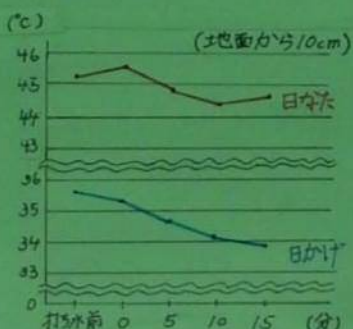 (℃)
(地面から10cm)
46
45
44
43
日なた
36
35
34
33
日かげ
0
打ち水前 0 5 10 15 (分)